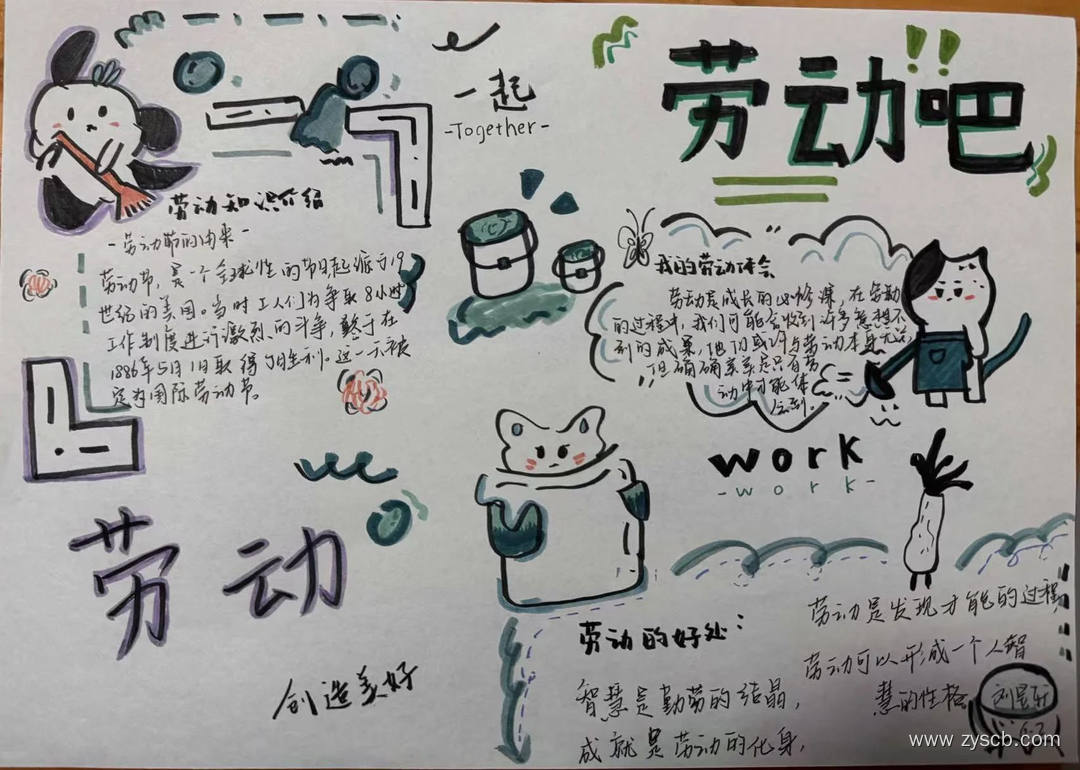 一起
-Together-
劳动吧!!
劳动知识介绍
-劳动节的由来-
劳动节,是一个全球性的节日起源于19
世纪的美国。当时工人们为争取8小时
工作制度进行激烈的斗争,终于在
1886年5月1日取得了胜利。这一天被
定为国际劳动节。
我的劳动体会
劳动是成长的必修课,在劳动
的过程中,我们可能会收到许多意想不
到的成果,他们或许与劳动本身无关
但确确实实是只有劳
动中才能体
会到.
work
-work-
劳动
创造美好
劳动的好处:
智慧是勤劳的结晶,
成就是劳动的化身,
劳动是发现才能的过程,
劳动可以形成一个人智
慧的性格
www.zyscb.com